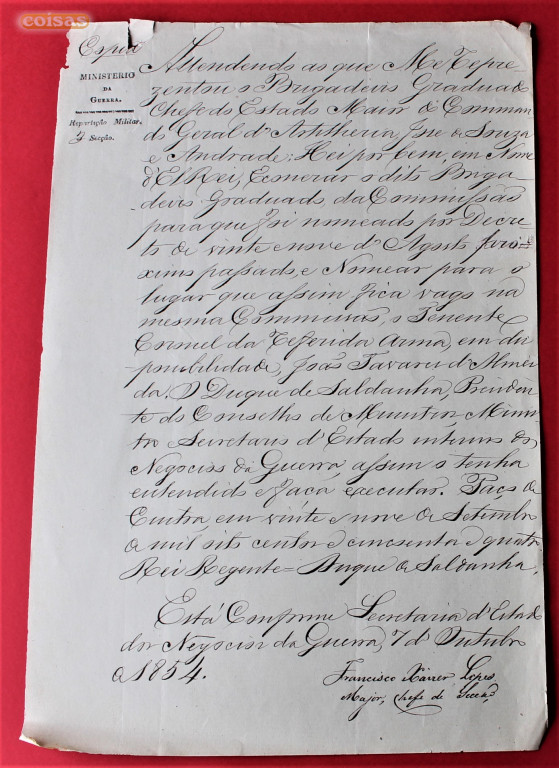 coisas
Copia
MINISTERIO
DA
GUERRA.
Repartição Militar.
3ª Secção.
Attendendo ao que Me Repre-
zentou o Brigadeiro Graduado
Chefe do Estado Maior do Comman-
do Geral d'Artilheria, José de Souza
e Andrade: Hei por bem, em Nome
d'ElRei, Exonerar o dito Briga-
deiro Graduado da Commissão
para que foi nomeado por Decre-
to de vinte e nove d'Agosto pró-
ximo passado, e Nomear para o
lugar que assim fica vago na
mesma Commissão, o Tenente
Coronel da referida Arma, em dis-
ponibilidade, João Tavares d'Almei-
da. O Duque de Saldanha, Presiden-
te do Conselho de Ministros, Minis-
tro e Secretario d'Estado interino dos
Negocios da Guerra, assim o tenha
entendido e faça executar. Paço de
Cintra, em vinte e nove de Setembro
de mil oito centos e cincoenta e quatro
Rei Regente = Duque de Saldanha.
Está Conforme Secretaria d'Estado
dos Negocios da Guerra, 7 d'Outubro
de 1854.
Francisco Xavier Lopes,
Major, Chefe de Secção